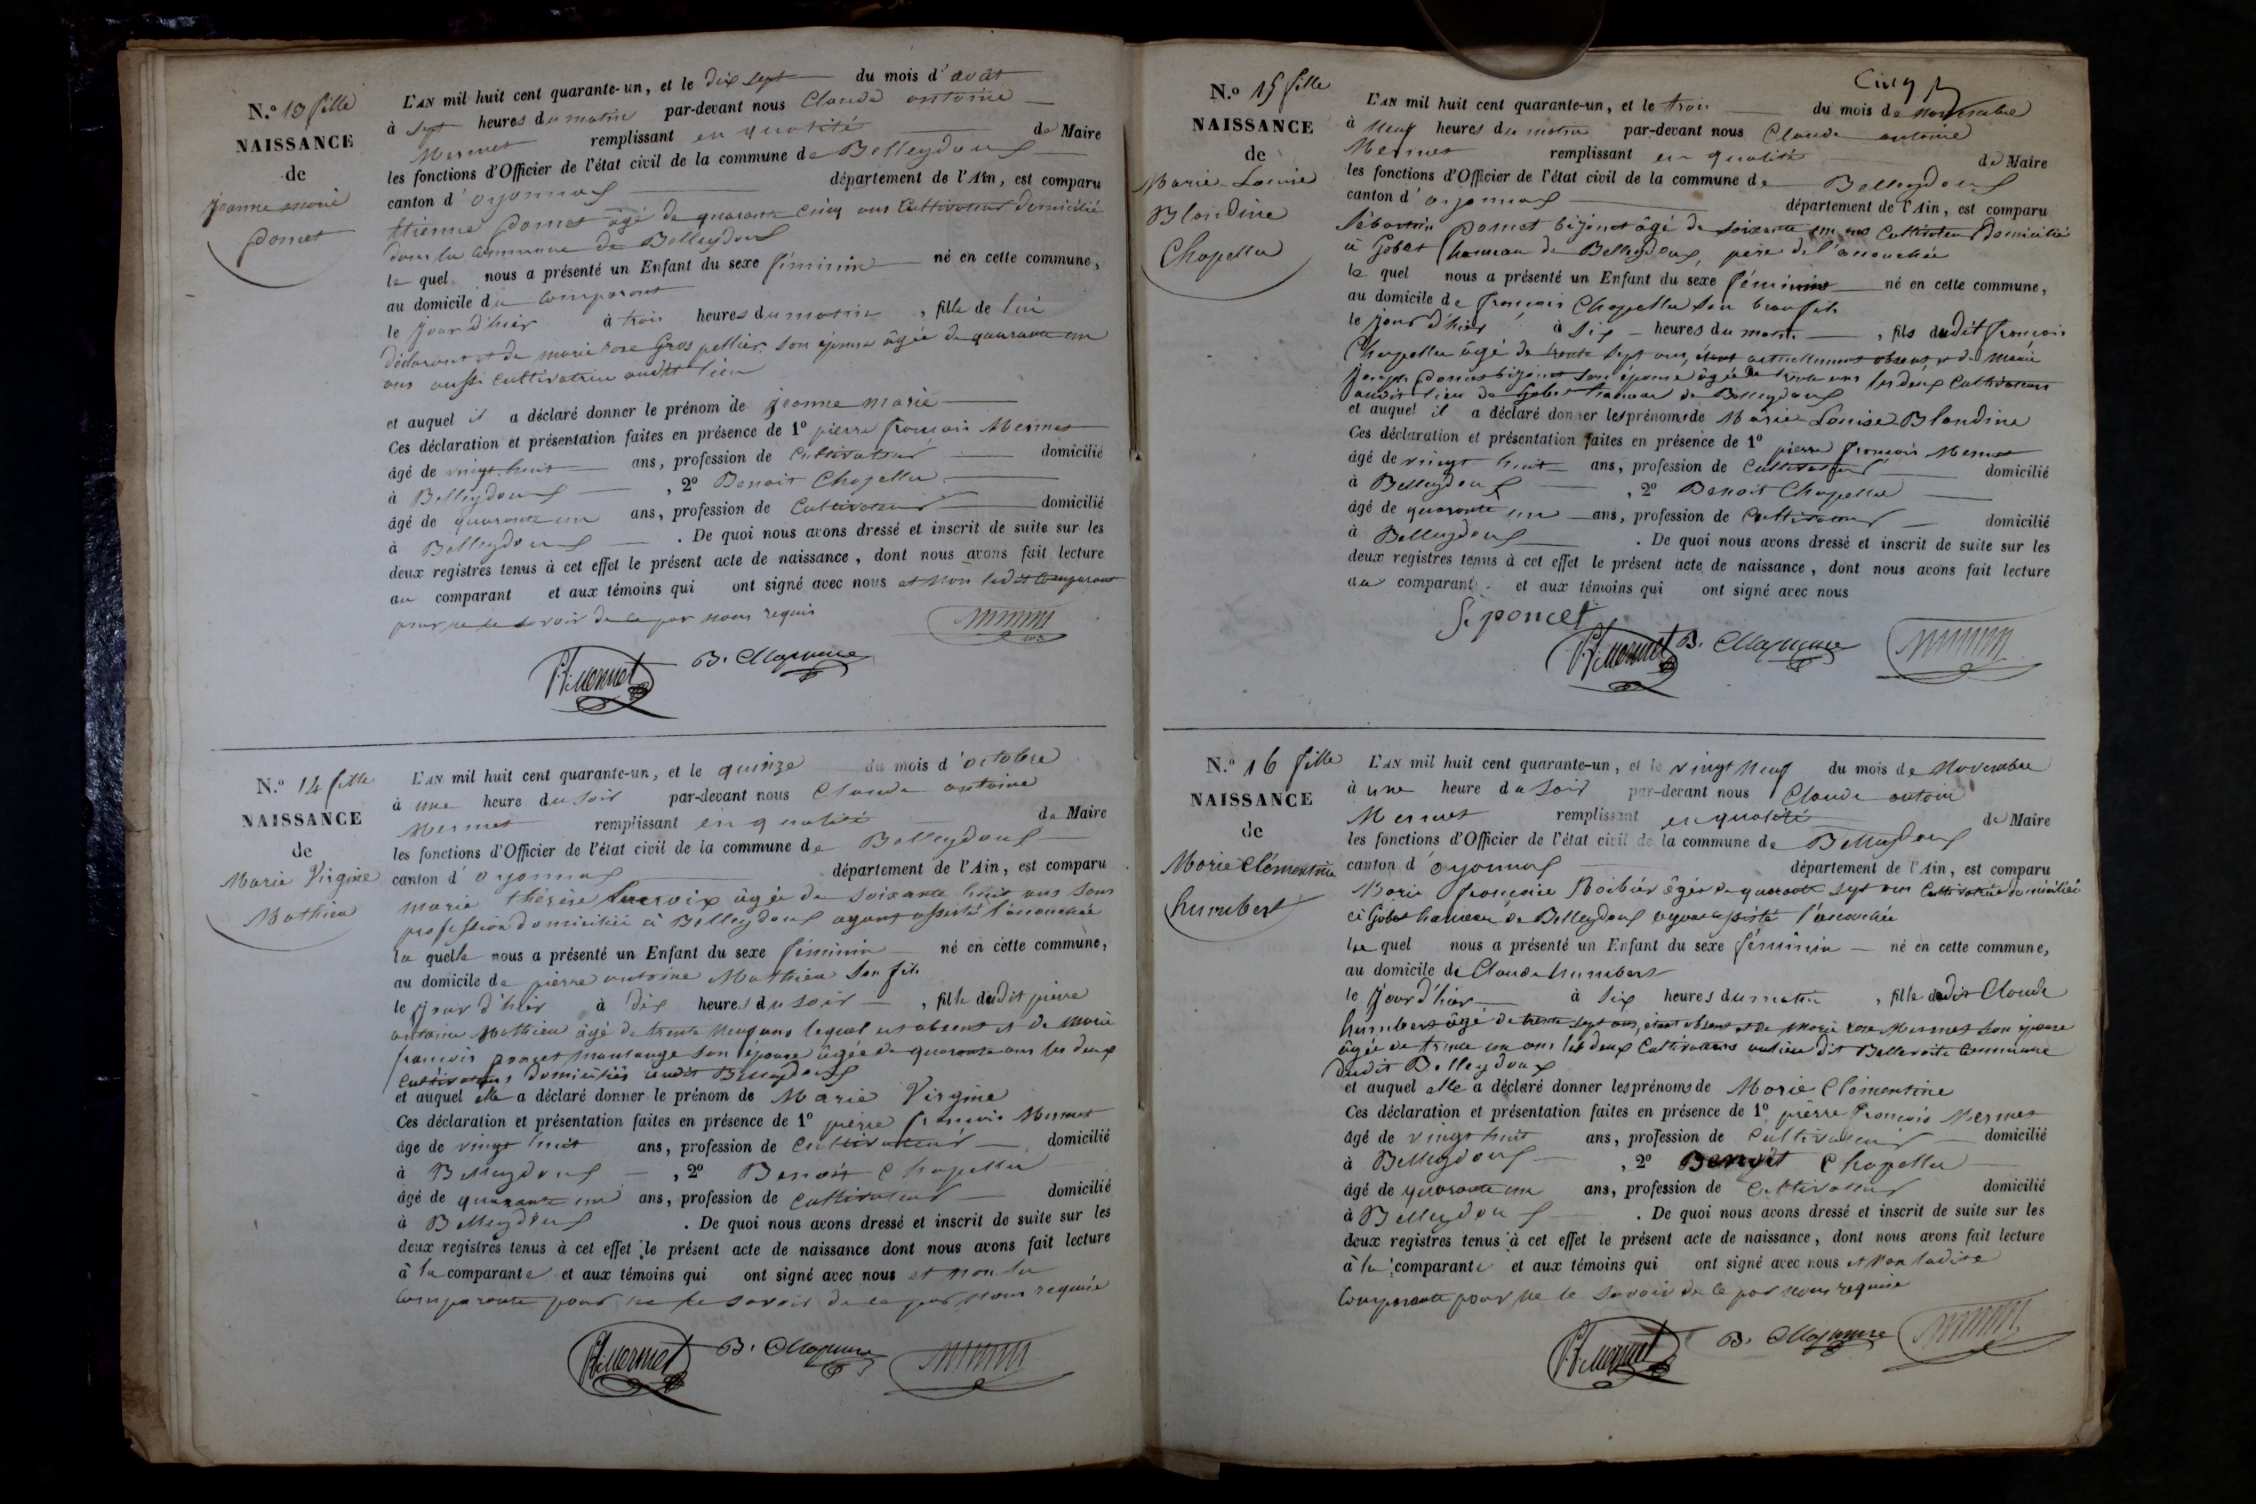 N.o 13 fille
NAISSANCE
de
jeanne marie
poncet
L'AN mil huit cent quarante-un, et le dix sept du mois d'août
à sept heures du matin par-devant nous Claude antoine
Mermet remplissant en qualité de Maire
les fonctions d'Officier de l'état civil de la commune de Belleydoux
canton d'oyonnax département de l'Ain, est comparu
étienne poncet âgé de quarante cinq ans Cultivateur domicilié
dans la commune de Belleydoux
le quel nous a présenté un Enfant du sexe féminin né en cette commune,
au domicile du comparant
le jour d'hier à trois heures du matin, fille de lui
déclarant et de marie rose Gros pellier son épouse âgée de quarante un
ans aussi cultivatrice audit lieu
et auquel il a déclaré donner le prénom de jeanne marie
Ces déclaration et présentation faites en présence de 1o pierre françois Mermet
âgé de vingt huit ans, profession de Cultivateur domicilié
à Belleydoux, 2o Benoit Chapellu
âgé de quarante un ans, profession de Cultivateur domicilié
à Belleydoux. De quoi nous avons dressé et inscrit de suite sur les
deux registres tenus à cet effet le présent acte de naissance, dont nous avons fait lecture
au comparant et aux témoins qui ont signé avec nous et non ledit Comparant
pour ne le savoir de ce par nous requis
N.o 14 fille
NAISSANCE
de
Marie Virginie
Mathieu
L'AN mil huit cent quarante-un, et le quinze du mois d'octobre
à une heure du soir par-devant nous Claude antoine
Mermet remplissant en qualité de Maire
les fonctions d'Officier de l'état civil de la commune de Belleydoux
canton d'oyonnax département de l'Ain, est comparu
marie thérèse Lacroix âgée de soixante huit ans sans
profession domiciliée à Belleydoux ayant assisté l'accouchée
la quelle nous a présenté un Enfant du sexe féminin né en cette commune,
au domicile de pierre antoine Mathieu son fils
le jour d'hier à dix heures du soir, fille dudit pierre
antoine Mathieu âgé de trente neuf ans lequel est absent et de marie
françois poncet montange son épouse âgée de quarante ans les deux
Cultivateurs domiciliés audit Belleydoux
et auquel elle a déclaré donner le prénom de Marie Virginie
Ces déclaration et présentation faites en présence de 1o pierre françois Mermet
âgé de vingt huit ans, profession de Cultivateur domicilié
à Belleydoux, 2o Benoit Chapellu
âgé de quarante un ans, profession de Cultivateur domicilié
à Belleydoux. De quoi nous avons dressé et inscrit de suite sur les
deux registres tenus à cet effet le présent acte de naissance dont nous avons fait lecture
à la comparante et aux témoins qui ont signé avec nous et non la
Comparante pour ne le savoir de ce par nous requise
Cinq
N.o 15 fille
NAISSANCE
de
Marie Louise
Blandine
Chapellu
L'AN mil huit cent quarante-un, et le trois du mois de novembre
à neuf heures du matin par-devant nous Claude antoine
Mermet remplissant en qualité de Maire
les fonctions d'Officier de l'état civil de la commune de Belleydoux
canton d'oyonnax département de l'Ain, est comparu
Sébastien poncet bijonet âgé de soixante un ans Cultivateur domicilié
à Gobet hameau de Belleydoux, père de l'accouchée
le quel nous a présenté un Enfant du sexe féminin né en cette commune,
au domicile de françois Chapellu son beau fils
le jour d'hier à six heures du matin, fils dudit françois
Chapellu âgé de trente sept ans, étant actuellement absent et de Marie
joseph poncet bijonet son épouse âgée de trente ans les deux Cultivateurs
audit lieu de Gobet hameau de Belleydoux
et auquel il a déclaré donner les prénoms de Marie Louise Blandine
Ces déclaration et présentation faites en présence de 1o pierre françois Mermet
âgé de vingt huit ans, profession de Cultivateur domicilié
à Belleydoux, 2o Benoit Chapellu
âgé de quarante un ans, profession de Cultivateur domicilié
à Belleydoux. De quoi nous avons dressé et inscrit de suite sur les
deux registres tenus à cet effet le présent acte de naissance, dont nous avons fait lecture
au comparant et aux témoins qui ont signé avec nous
S. poncet
N.o 16 fille
NAISSANCE
de
Marie Clémentine
humbert
L'AN mil huit cent quarante-un, et le vingt neuf du mois de Novembre
à une heure du soir par-devant nous Claude antoine
Mermet remplissant en qualité de Maire
les fonctions d'Officier de l'état civil de la commune de Belleydoux
canton d'oyonnax département de l'Ain, est comparu
Marie françoise âgée de quarante sept ans Cultivatrice domiciliée
à Gobet hameau de Belleydoux ayant assisté l'accouchée
la quel nous a présenté un Enfant du sexe féminin né en cette commune,
au domicile de Claude humbert
le jour d'hier à six heures du matin, fille dudit Claude
humbert âgé de trente sept ans, étant absent et de Marie rose Mermet son épouse
âgée de trente un ans les deux Cultivateurs au lieu dit Bellevoite Commune
dudit Belleydoux
et auquel elle a déclaré donner les prénoms de Marie Clémentine
Ces déclaration et présentation faites en présence de 1o pierre françois Mermet
âgé de vingt huit ans, profession de Cultivateur domicilié
à Belleydoux, 2o Benoit Chapellu
âgé de quarante un ans, profession de Cultivateur domicilié
à Belleydoux. De quoi nous avons dressé et inscrit de suite sur les
deux registres tenus à cet effet le présent acte de naissance, dont nous avons fait lecture
à la comparante et aux témoins qui ont signé avec nous et non ladite
Comparante pour ne le savoir de ce par nous requise